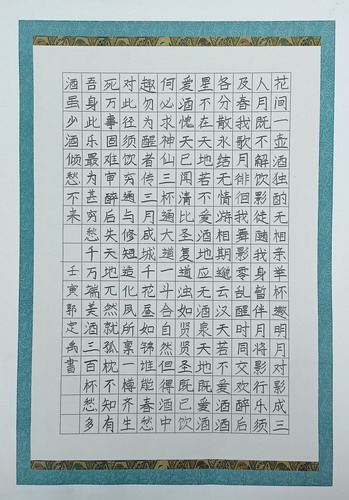 花间一壶酒独酌无相亲举杯邀明月对影成三
人月既不解饮影徒随我身暂伴月将影行乐须
及春我歌月徘徊我舞影零乱醒时同交欢醉后
各分散永结无情游相期邈云汉天若不爱酒酒
星不在天地若不爱酒地应无酒泉天地既爱酒
爱酒愧天已闻清比圣复道浊如贤贤圣既已饮
何必求神仙三杯通大道一斗合自然但得酒中
趣勿为醒者传三月咸城千花昼如锦谁能春愁
对此径须饮穷通与修短造化夙所禀一樽齐生
死万事固难审醉后失天地兀然就孤枕不知有
吾身此乐最为甚穷愁千万端美酒三百杯愁多
酒虽少酒倾愁不来 壬寅郭定禹書